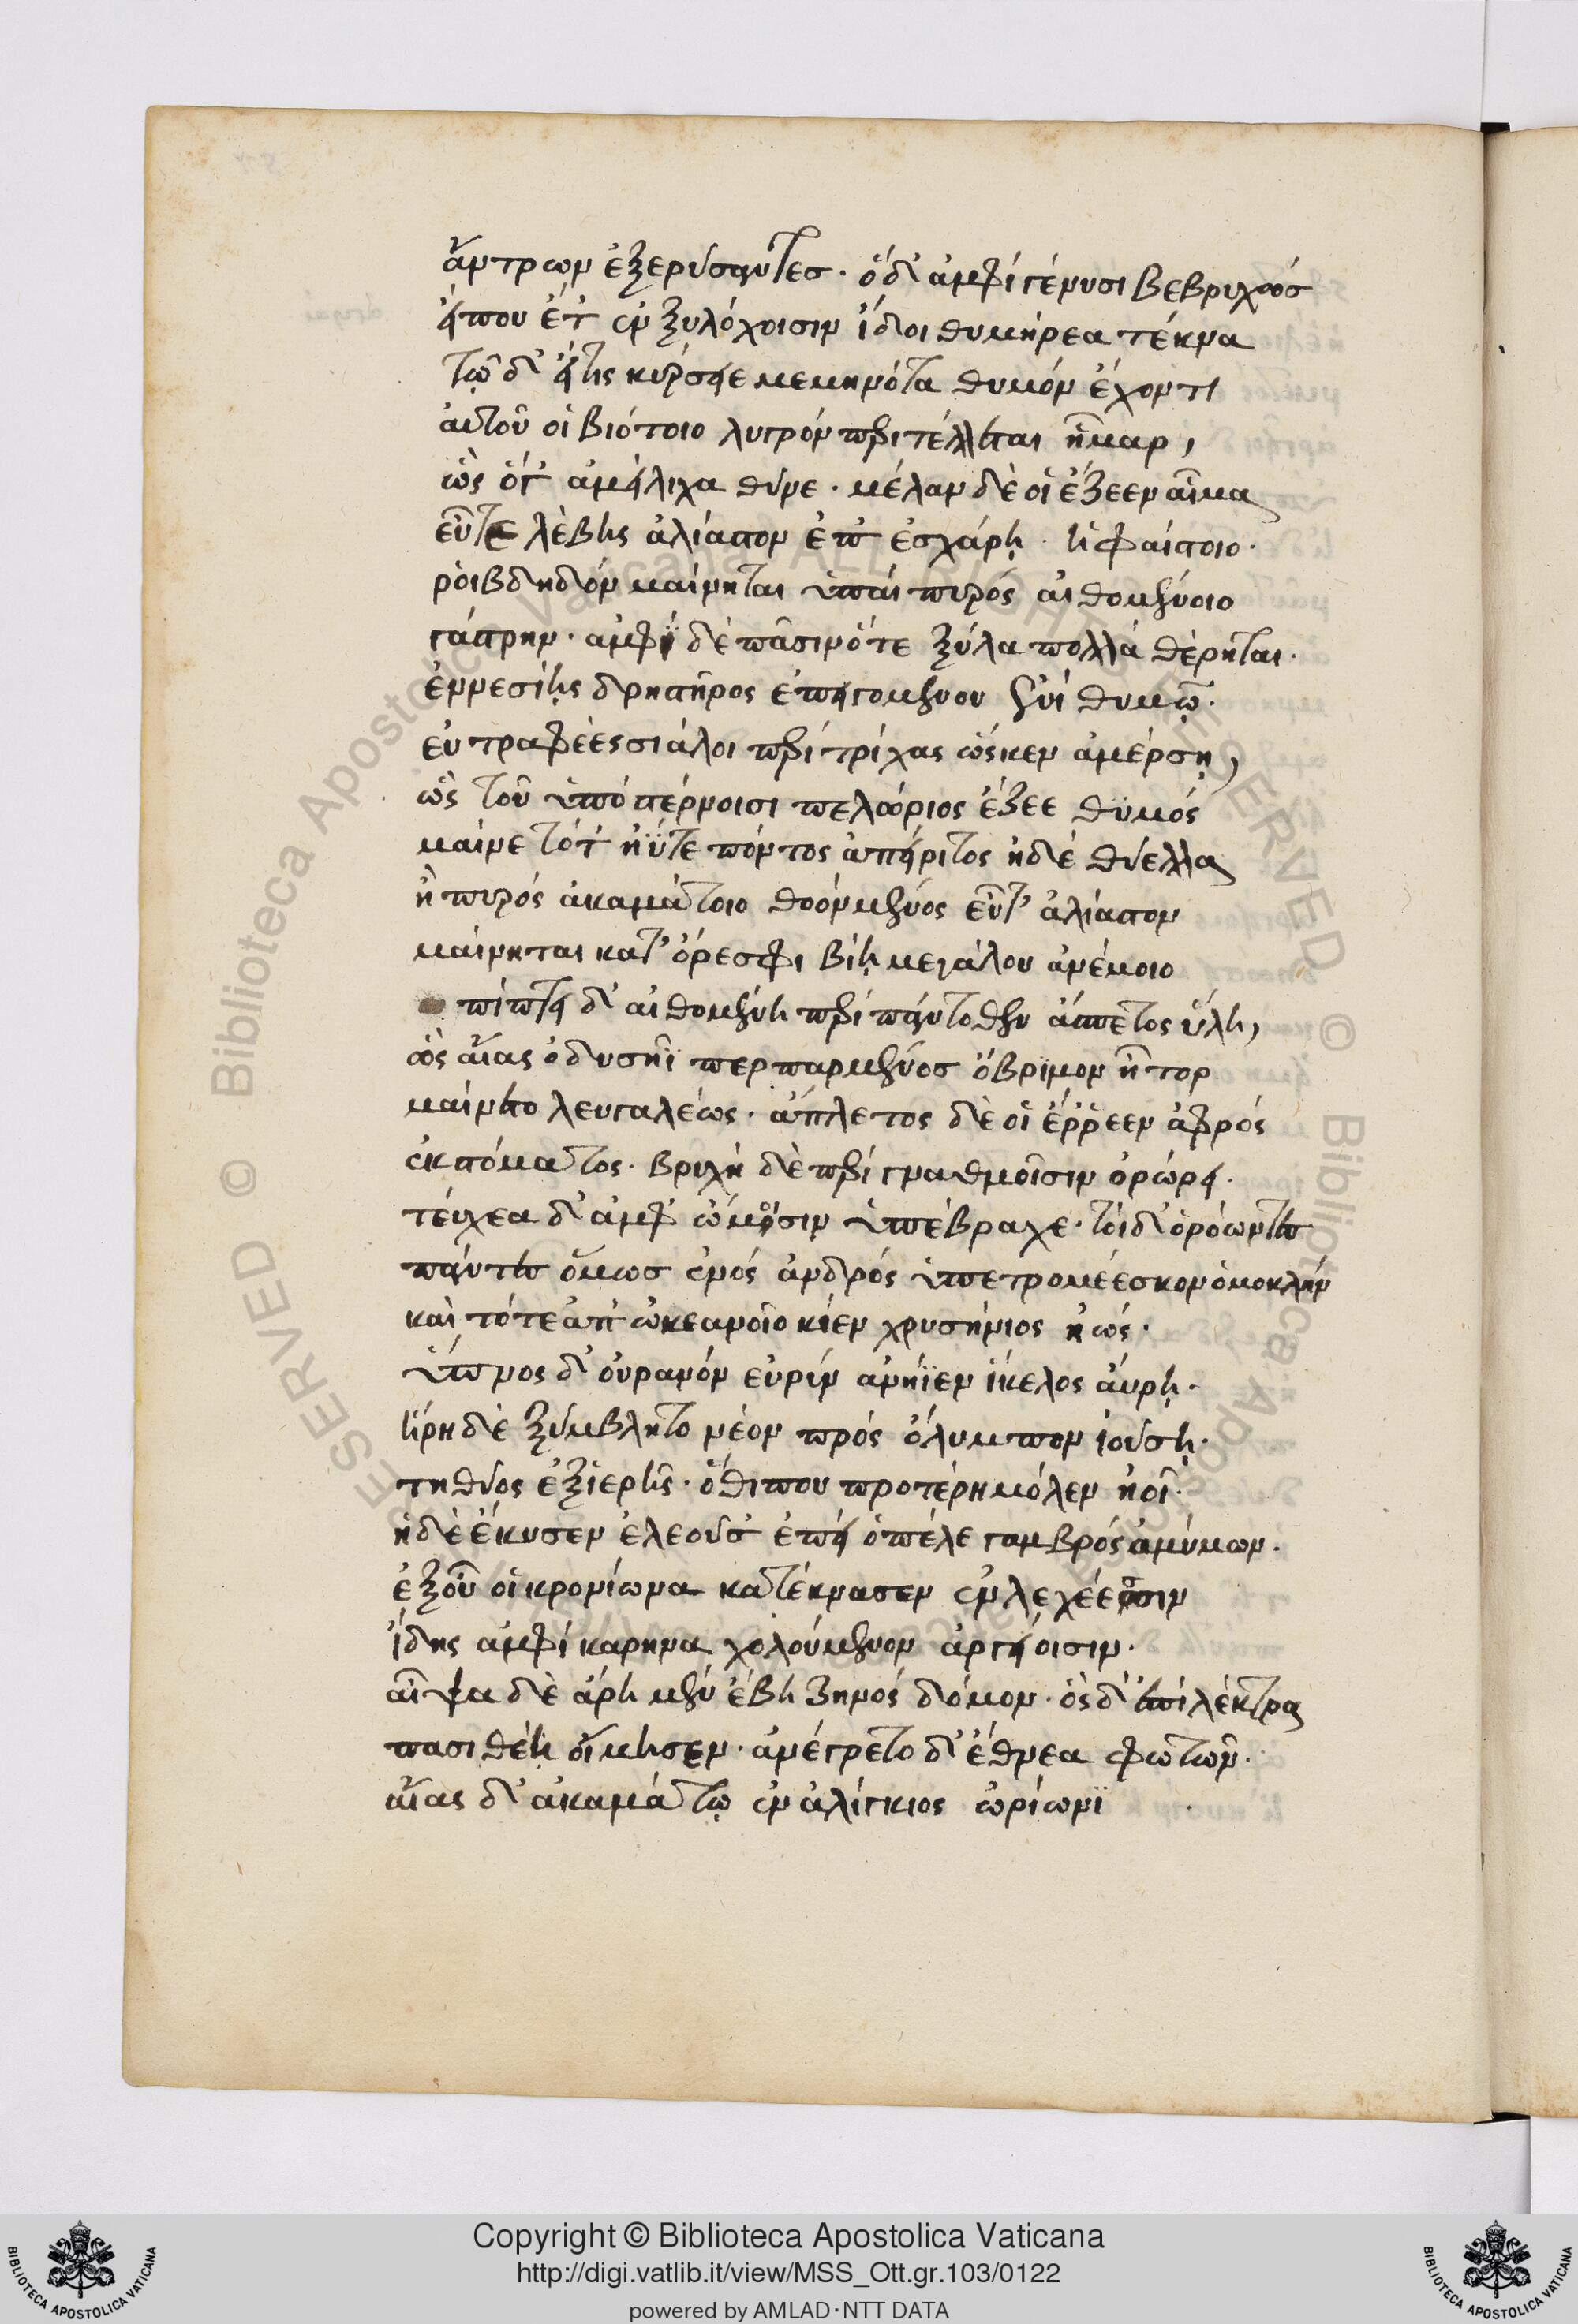 ἄντρων ἐξερύσαντες· ὁ δ' ἀμφὶ γένυσι βεβρυχὼς
εἴπου ἔτ' ἐν ξυλόχοισιν ἴδοι θυμήρεα τέκνα
τῷ δ' εἴτις κύρσειε μεμηνότα θυμὸν ἔχοντι
αὐτοῦ οἱ βιότοιο λυγρὸν περιτέλλεται ἦμαρ,
ὣς ὅγ' ἀμείλιχα θῦνε· μέλαν δέ οἱ ἔζεεν αἷμα
εὖτε λέβης ἀλίαστον ἐπ' ἐσχάρῃ ἡφαίστοιο·
ῥοιβδηδὸν μαίνηται ὑπαὶ πυρὸς αἰθομένοιο
γάστρην· ἀμφὶ δὲ πᾶσιν ὅτε ξύλα πολλὰ θέρηται·
ἐννεσίῃς δρηστῆρος ἐπειγομένου ἐνὶ θυμῷ·
εὐτραφέες σιάλοι περὶ τρίχας ὥς κεν ἀμέρσῃ,
ὣς τοῦ ὑπὸ στέρνοισι πελώριος ἔζεε θυμὸς
μαίνετο τ' ἠΰτε πόντος ἀπείριτος ἠδὲ θύελλα
ἢ πυρὸς ἀκαμάτοιο θοὸν μένος εὖτ' ἀλίαστον
μαίνηται κατ' ὄρεσφι βίῃ μεγάλου ἀνέμοιο
πίπτει δ' αἰθομένη περὶ πάντοθεν ἄσπετος ὕλη,
ὣς αἴας ὀδυσῆϊ πεπαρμένος ὄβριμον ἦτορ
μαίνετο λευγαλέως· ἄπλετος δέ οἱ ἔῤῥεεν ἀφρὸς
ἐκ στόματος· βρυχὴ δὲ περὶ γναθμοῖσιν ὀρώρει·
τεύχεα δ' ἀμφ' ὤμοισιν ὑπέβραχε· τοὶ δ' ὁρόωντες
πάντες ὅμως ἑνὸς ἀνδρὸς ὑπετρομέεσκον ὁμοκλήν
καὶ τότε ἀπ' ὠκεανοῖο κίεν χρυσήνιος ἠώς·
ὕπνος δ' οὐρανὸν εὐρὺν ἀνήϊεν ἴκελος αὔρῃ·
ἥρη δὲ ξύμβλητο νέον πρὸς ὄλυμπον ἰούσῃ·
τηθύος ἐξ ἱερῆς· ὅθι που προτέρη μόλεν ἠοῖ·
ἡ δὲ ἔκυσεν ἑλοῦσ' ἐπεὶ ὁ πέλε γαμβρὸς ἀμύμων·
ἐξ οὗ οἱ κρονίωνα κατεύνασεν ἐν λεχέεσσιν
ἴδης ἀμφὶ κάρηνα χολούμενον ἀργείοισιν·
αἶψα δὲ ἄρη μὲν ἔβη ζηνὸς δόμον· ὃς δ' ἐπὶ λέκτρα
πασιθέη οἴμησεν· ἀνέγρετο δ' ἔθνεα φωτῶν·
αἴας δ' ἀκαμάτῳ ἐναλίγκιος ὠρίωνϊ
Copyright © Biblioteca Apostolica Vaticana
http://digi.vatlib.it/view/MSS_Ott.gr.103/0122
powered by AMLAD·NTT DATA
BIBLIOTECA APOSTOLICA VATICANA
BIBLIOTECA APOSTOLICA VATICANA